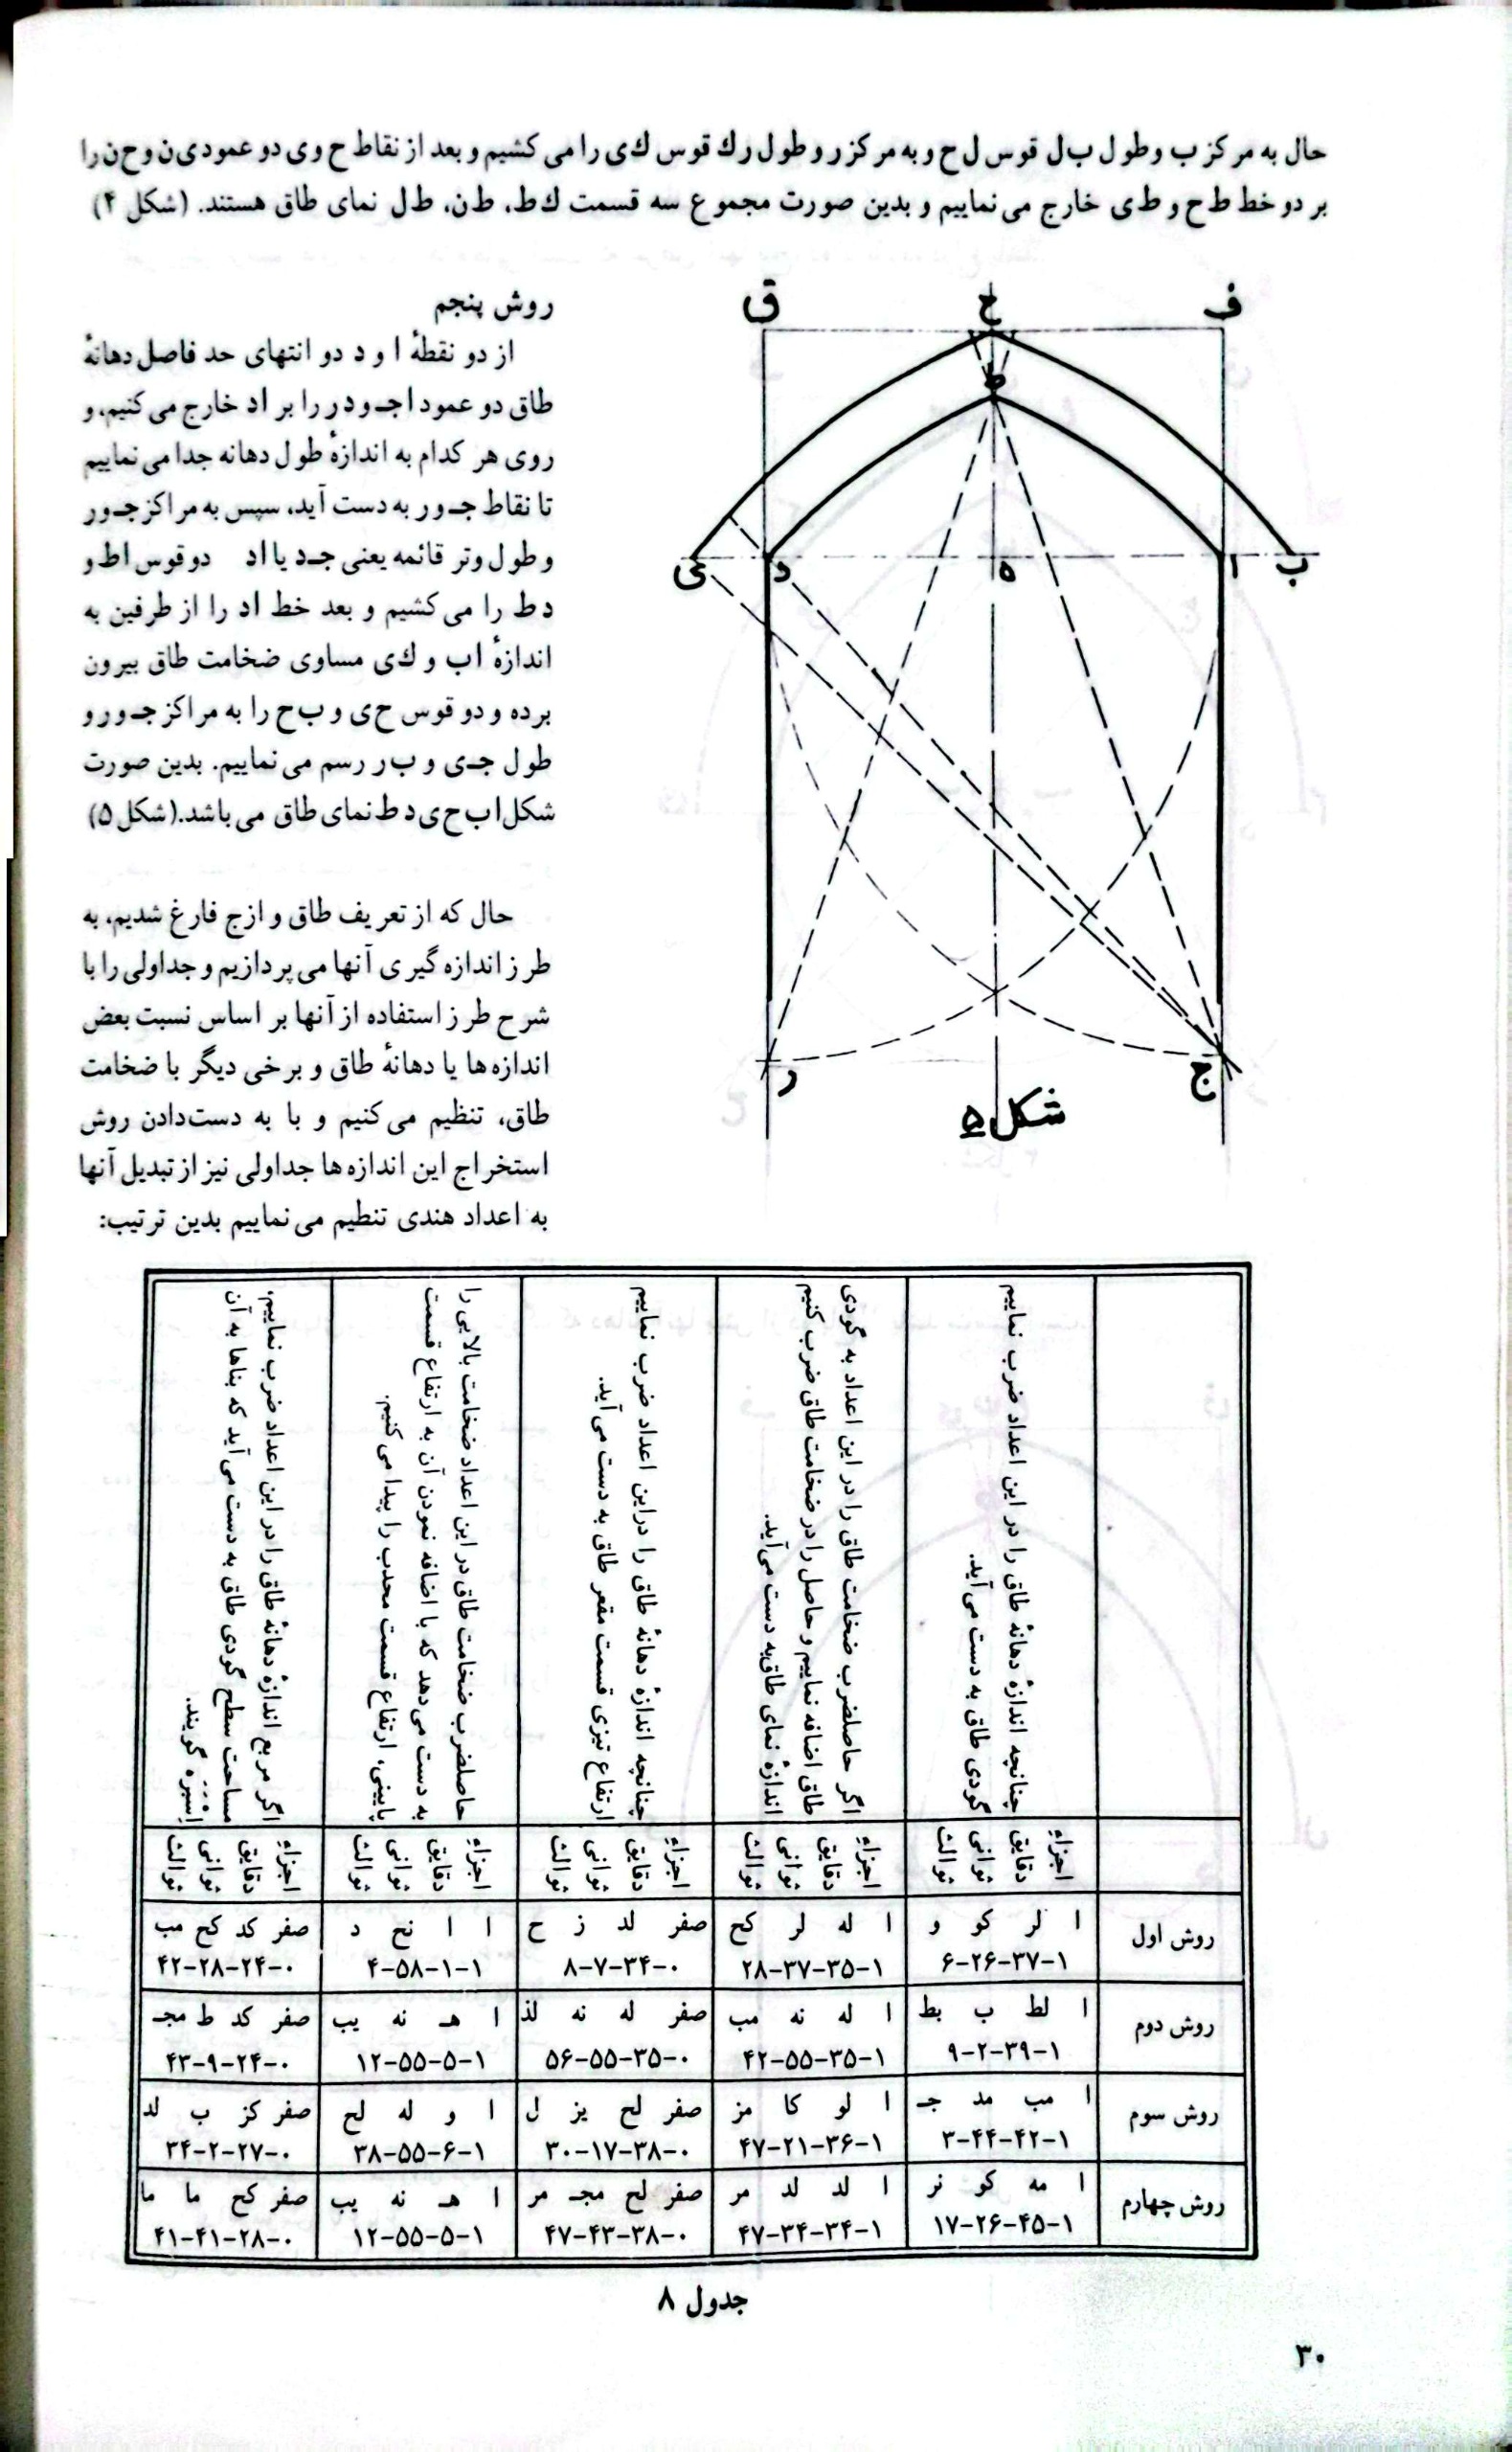 حال به مرکز ب و طول ب‌ل قوس ل‌ح و به مرکز ر و طول رك قوس ك‌ی را می کشیم و بعد از نقاط ح و ی دو عمود ی‌ن و ح‌ن را
بر دو خط ط ح و ط ی خارج می نماییم و بدین صورت مجموع سه قسمت ك‌ط، ط ن، ط ل نمای طاق هستند. (شکل ۴)
ق
ح
ف
ط
ی
د
ه
ا
ب
ر
ج
شکل ۵
روش پنجم
از دو نقطهٔ ا و د دو انتهای حد فاصل دهانهٔ
طاق دو عمود ا‌جـ و د‌ر را بر اد خارج می کنیم، و
روی هر کدام به اندازهٔ طول دهانه جدا می نماییم
تا نقاط جـ و ر به دست آید، سپس به مراکز جـ و ر
و طول وتر قائمه یعنی جـ‌د یا اد دو قوس اط و
د ط را می کشیم و بعد خط اد را از طرفین به
اندازهٔ اب و ك‌ی مساوی ضخامت طاق بیرون
برده و دو قوس ح‌ی و ب‌ح را به مراکز جـ و ر و
طول جـ‌ی و ب‌ر رسم می نماییم. بدین صورت
شکل ا ب ح ی د ط نمای طاق می باشد. (شکل ۵)
حال که از تعریف طاق و ازج فارغ شدیم، به
طرز اندازه گیری آنها می پردازیم و جداولی را با
شرح طرز استفاده از آنها بر اساس نسبت بعض
اندازه ها یا دهانهٔ طاق و برخی دیگر با ضخامت
طاق، تنظیم می کنیم و با به دست دادن روش
استخراج این اندازه ها جداولی نیز از تبدیل آنها
به اعداد هندی تنطیم می نماییم بدین ترتیب:
چنانچه اندازهٔ دهانهٔ طاق را در این اعداد ضرب نماییم
گودی طاق به دست می آید.
اگر حاصلضرب ضخامت طاق را در این اعداد به گودی
طاق اضافه نماییم و حاصل را در ضخامت طاق ضرب کنیم
اندازهٔ نمای طاق به دست می آید.
چنانچه اندازهٔ دهانهٔ طاق را در این اعداد ضرب نماییم
ارتفاع تیزی قسمت مقعر طاق به دست می آید.
حاصلضرب ضخامت طاق در این اعداد ضخامت بالایی را
به دست می دهد که با اضافه نمودن آن به ارتفاع قسمت
پایینی، ارتفاع قسمت محدب را پیدا می کنیم.
اگر مربع اندازهٔ دهانهٔ طاق را در این اعداد ضرب نماییم،
مساحت سطح گودی طاق به دست می آید که بناها به آن
اِسْپَرَه گویند.
اجزاءِ دقایق ثوانی ثوالث
اجزاءِ دقایق ثوانی ثوالث
اجزاءِ دقایق ثوانی ثوالث
اجزاءِ دقایق ثوانی ثوالث
اجزاءِ دقایق ثوانی ثوالث
روش اول
ا لر کو و
۱-۳۷-۲۶-۶
ا له لر کح
۱-۳۵-۳۷-۲۸
صفر لد ز ح
۰-۳۴-۷-۸
ا ا نح د
۱-۱-۵۸-۴
صفر کد کح مب
۰-۲۴-۲۸-۴۲
روش دوم
ا لط ب بط
۱-۳۹-۲-۹
ا له نه مب
۱-۳۵-۵۵-۴۲
صفر له نه لذ
۰-۳۵-۵۵-۵۶
ا هـ نه یب
۱-۵-۵۵-۱۲
صفر کد ط مجـ
۰-۲۴-۹-۴۳
روش سوم
ا مب مد جـ
۱-۴۲-۴۴-۳
ا لو کا مز
۱-۳۶-۲۱-۴۷
صفر لح یز ل
۰-۳۸-۱۷-۳۰
ا و له لح
۱-۶-۵۵-۳۸
صفر کز ب لد
۰-۲۷-۲-۳۴
روش چهارم
ا مه کو نر
۱-۴۵-۲۶-۱۷
ا لد لد مر
۱-۳۴-۳۴-۴۷
صفر لح مجـ مر
۰-۳۸-۴۳-۴۷
ا هـ نه یب
۱-۵-۵۵-۱۲
صفر کح ما ما
۰-۲۸-۴۱-۴۱
جدول ۸
۳۰